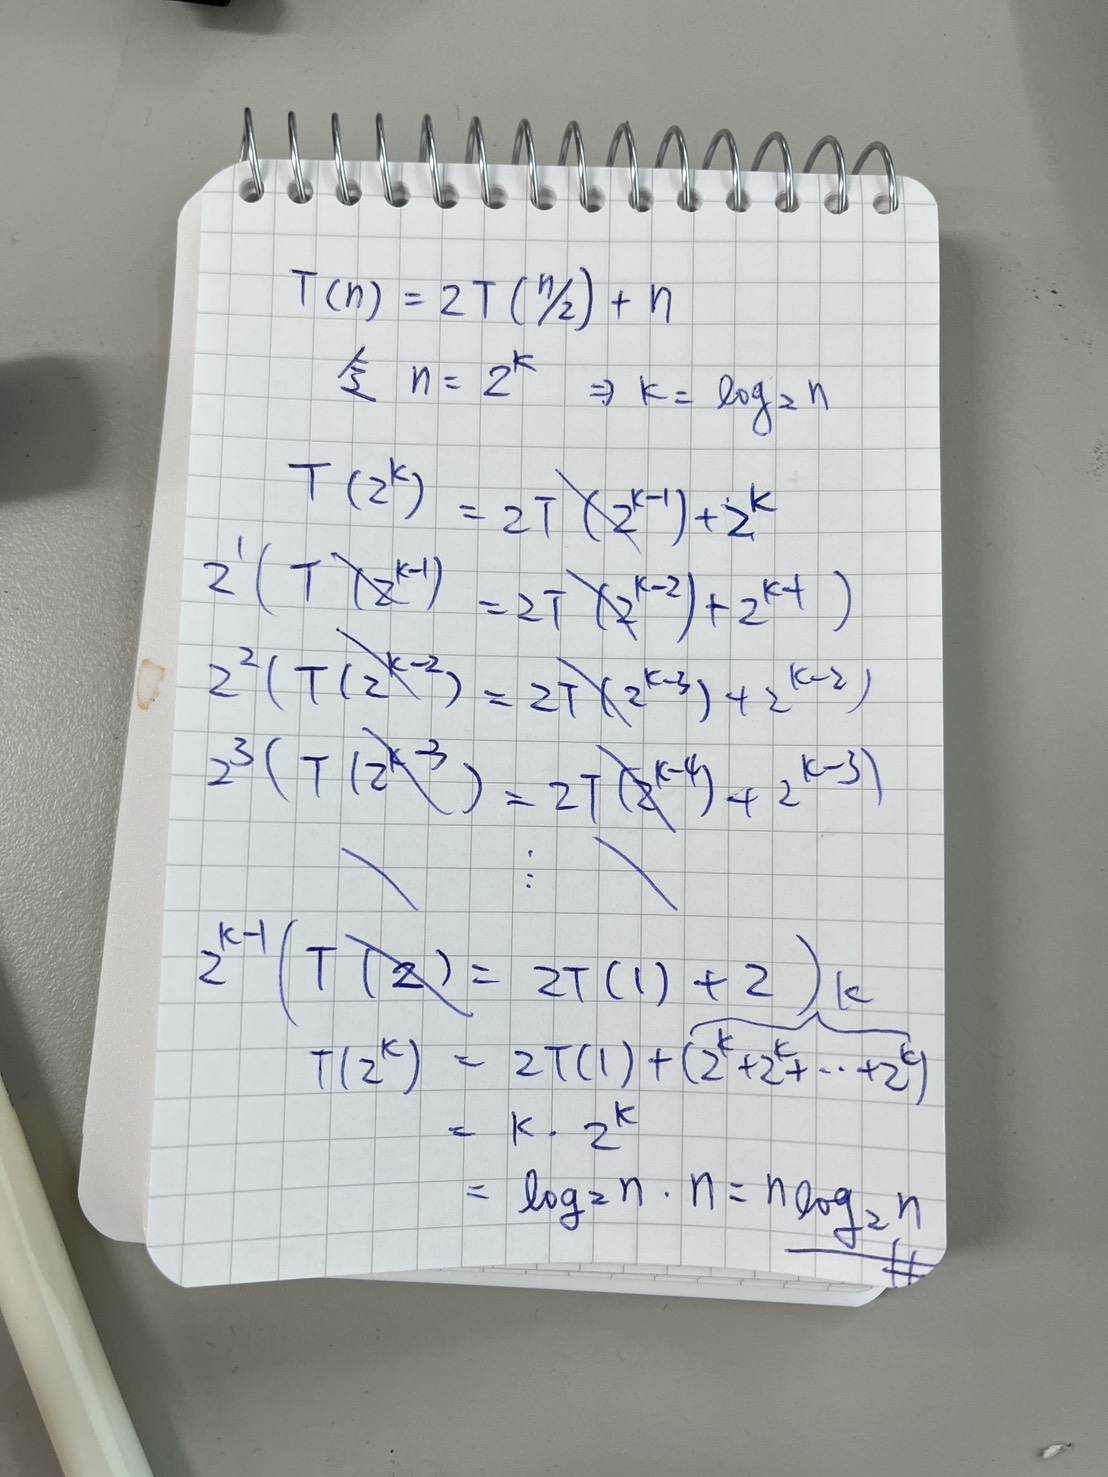 T(n) = 2T(n/2) + n
令 n = 2^k ⇒ k = log₂n
T(2^k) = 2T(2^{k-1}) + 2^k
2^1(T(2^{k-1}) = 2T(2^{k-2}) + 2^{k-1})
2^2(T(2^{k-2}) = 2T(2^{k-3}) + 2^{k-2})
2^3(T(2^{k-3}) = 2T(2^{k-4}) + 2^{k-3})
⋮
2^{k-1}(T(2) = 2T(1) + 2)
k
T(2^k) = 2T(1) + (2^k + 2^k + ... + 2^k)
= k · 2^k
= log₂n · n = n log₂n #